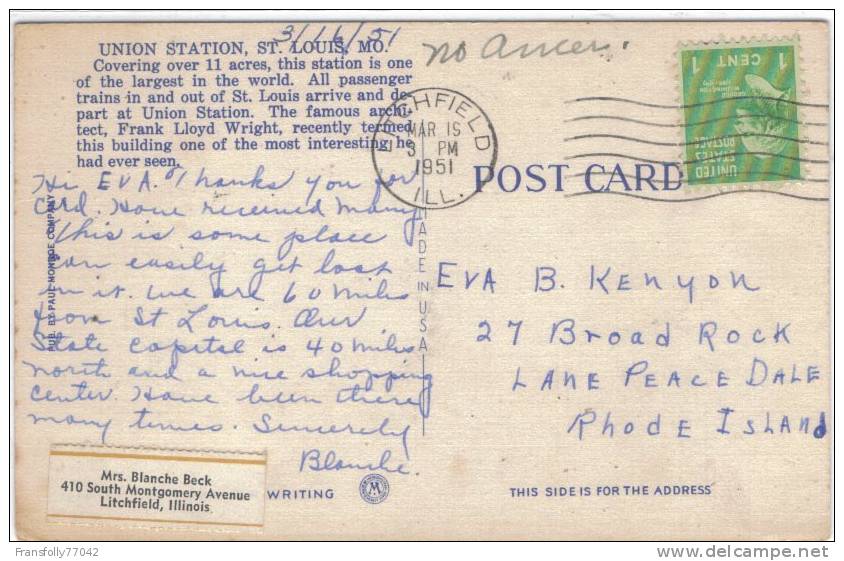 3/16/51
UNION STATION, ST. LOUIS, MO.
Covering over 11 acres, this station is one
of the largest in the world. All passenger
trains in and out of St. Louis arrive and de-
part at Union Station. The famous archi-
tect, Frank Lloyd Wright, recently termed
this building one of the most interesting he
had ever seen.
Hi EVA. Thanks you for
Card. Have received many
This is some place
can easily get lost
in it. We are 60 miles
from St Louis. Our
State capital is 40 miles
north and a nice shopping
center. Have been there
many times. Sincerely
Blanche.
Mrs. Blanche Beck
410 South Montgomery Avenue
Litchfield, Illinois
WRITING
PUB. BY PAUL MONROE COMPANY
MADE IN USA
no
LITCHFIELD
MAR 15
3 PM
1951
ILL.
1 CENT 1
GEORGE
WASHINGTON
UNITED
STATES
POSTAGE
POST CARD
EVA B. KENYON
27 Broad ROCK
LANE PEACE DALE
Rhode ISLAND
M
THIS SIDE IS FOR THE ADDRESS
Fransfolly77042
delcampe.net